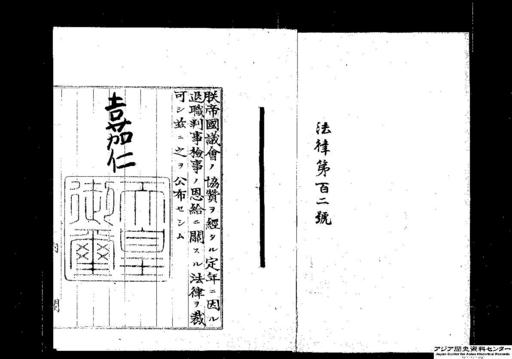 法律第百二號
朕帝國議會ノ協贊ヲ經タル定年ニ因ル
退職判事檢事ノ恩給ニ關スル法律ヲ裁
可シ茲ニ之ヲ公布セシム
嘉仁
天皇
御璽
アジア歴史資料センター
Japan Center for Asian Historical Records